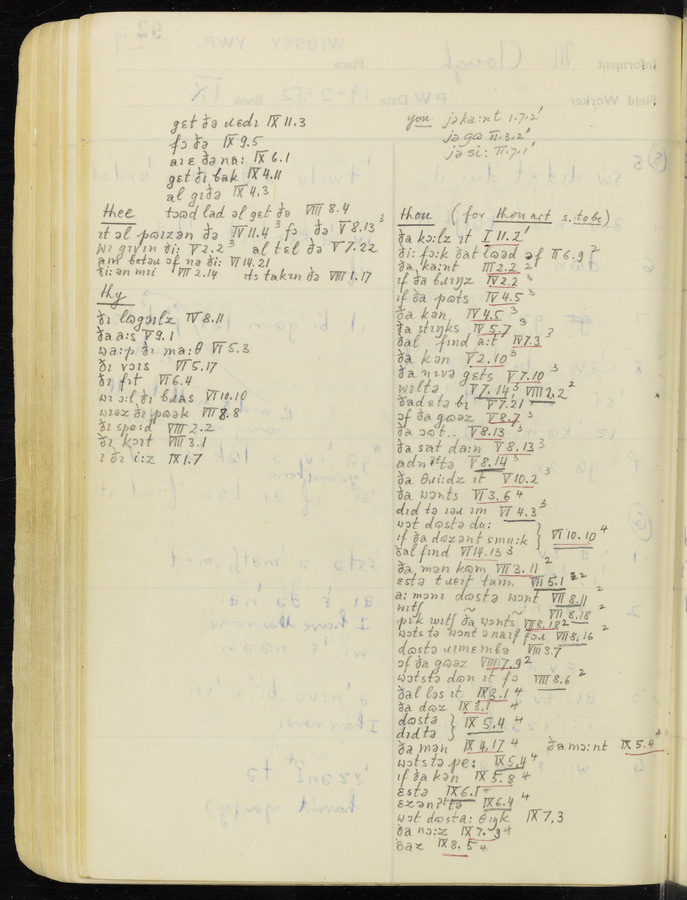 gɛt ðə ɹɛdɪ IX 11.3
fɔ ðə IX 9.5
aɪ ɛ ðə na: IX 6.1
gɛt ðɪ bak IX 4.11
al gɪðə IX 4.3
thee tɔʊd lad əl gɛt ðə VIII 8.4
ɪt əl pɒɪzən ðə IV 11.4³ fɔ ðə V 8.13³
wɪ gɪvɪn ði: V 2.2³ al tɛl ðə V 7.22
am betəɹ ɔf nə ði: VI 14.21
ði:ən mɪi VII 2.14 ɪts takɪn ðə VIII 1.17
thy
ðɪ lɒgɔɪlz IV 8.11
ða a:s V 9.1
wa:p ðɪ ma:θ VI 5.3
ðɪ vɔɪs VI 5.17
ðɪ fɪt VI 6.4
wɪ ɔ:l ðɪ bɹas VI 10.10
wɪəz ðɪ pʊək VIII 8.8
ðɪ spɛ:d VIII 2.2
ðɪ kɔɪt VIII 3.1
ɪ ðɪ i:z IX 1.7
you jəka:nt 1.7.2'
jə gʊ II.3.2'
jə si: II.7.1'
thou (for thou art s. to be)
ða kɔ:lz ɪt I 11.2'
ði: fɔ:k ðat lʊəd əf II 6.9²
ða ka:nt III 2.2²
ɪf ða bɹɪŋz IV 2.2³
ɪf ða pʊts IV 4.5³
ða kən IV 4.5³
ða stɪŋks IV 5.7³
ðal fɪnd a:t IV 7.3³
ða kən V 2.10³
ða nɪvə gɛts V 7.10³
wɪltə V 7.14³ VIII 2.2²
ðad ɛtə bɪ V 7.21
ɔf ða gʊəz V 8.7³
ða ɔʊt.. V 8.13³
ða sat da:n V 8.13³
adnʔtə V 8.14³
ða θɹi:dz ɪt V 10.2³
ða wɔnts VI 3.6⁴
dɪd tə ɪəɹ ɪm VI 4.3³
wɔt dʊstə du:
ɪf ða dʊzənt smu:k } VI 10.10⁴
ðal fɪnd VI 14.13³
ða mən kʊm VII 3.11²
ɛstə tɹɛɪf taɪm VII 5.1²
a: mɔnɪ dʊstə wɔnt VII 8.11²
wɪtʃ VII 8.18²
pɪk wɪtʃ ða wɔnts VII 8.18²
wɔts tə wɔnt ə naɪf fɔɹ VII 8,16²
dʊstə ɹɪmɛmbə VIII 3.7
ɔf ða gʊəz VIII 7.9²
wɔtstə dʊn ɪt fɔ VIII 8.6²
ðal lɔs ɪt IX 2.1⁴
ða dʊz IX 3.1⁴
dʊstə
dɪdtə } IX 5.4⁴
ða mən IX 4.17⁴ ða mɔ:nt IX 5.4⁴
wɔts tə pɛ: IX 5.4⁴
ɪf ða kən IX 5.8⁴
ɛstə IX 6.1⁴
ɛzənʔtə IX 6.4⁴
wɔt dʊsta: θɪŋk IX 7,3
ða nɔ:z IX 7.9⁴
ðaz IX 8,5⁴